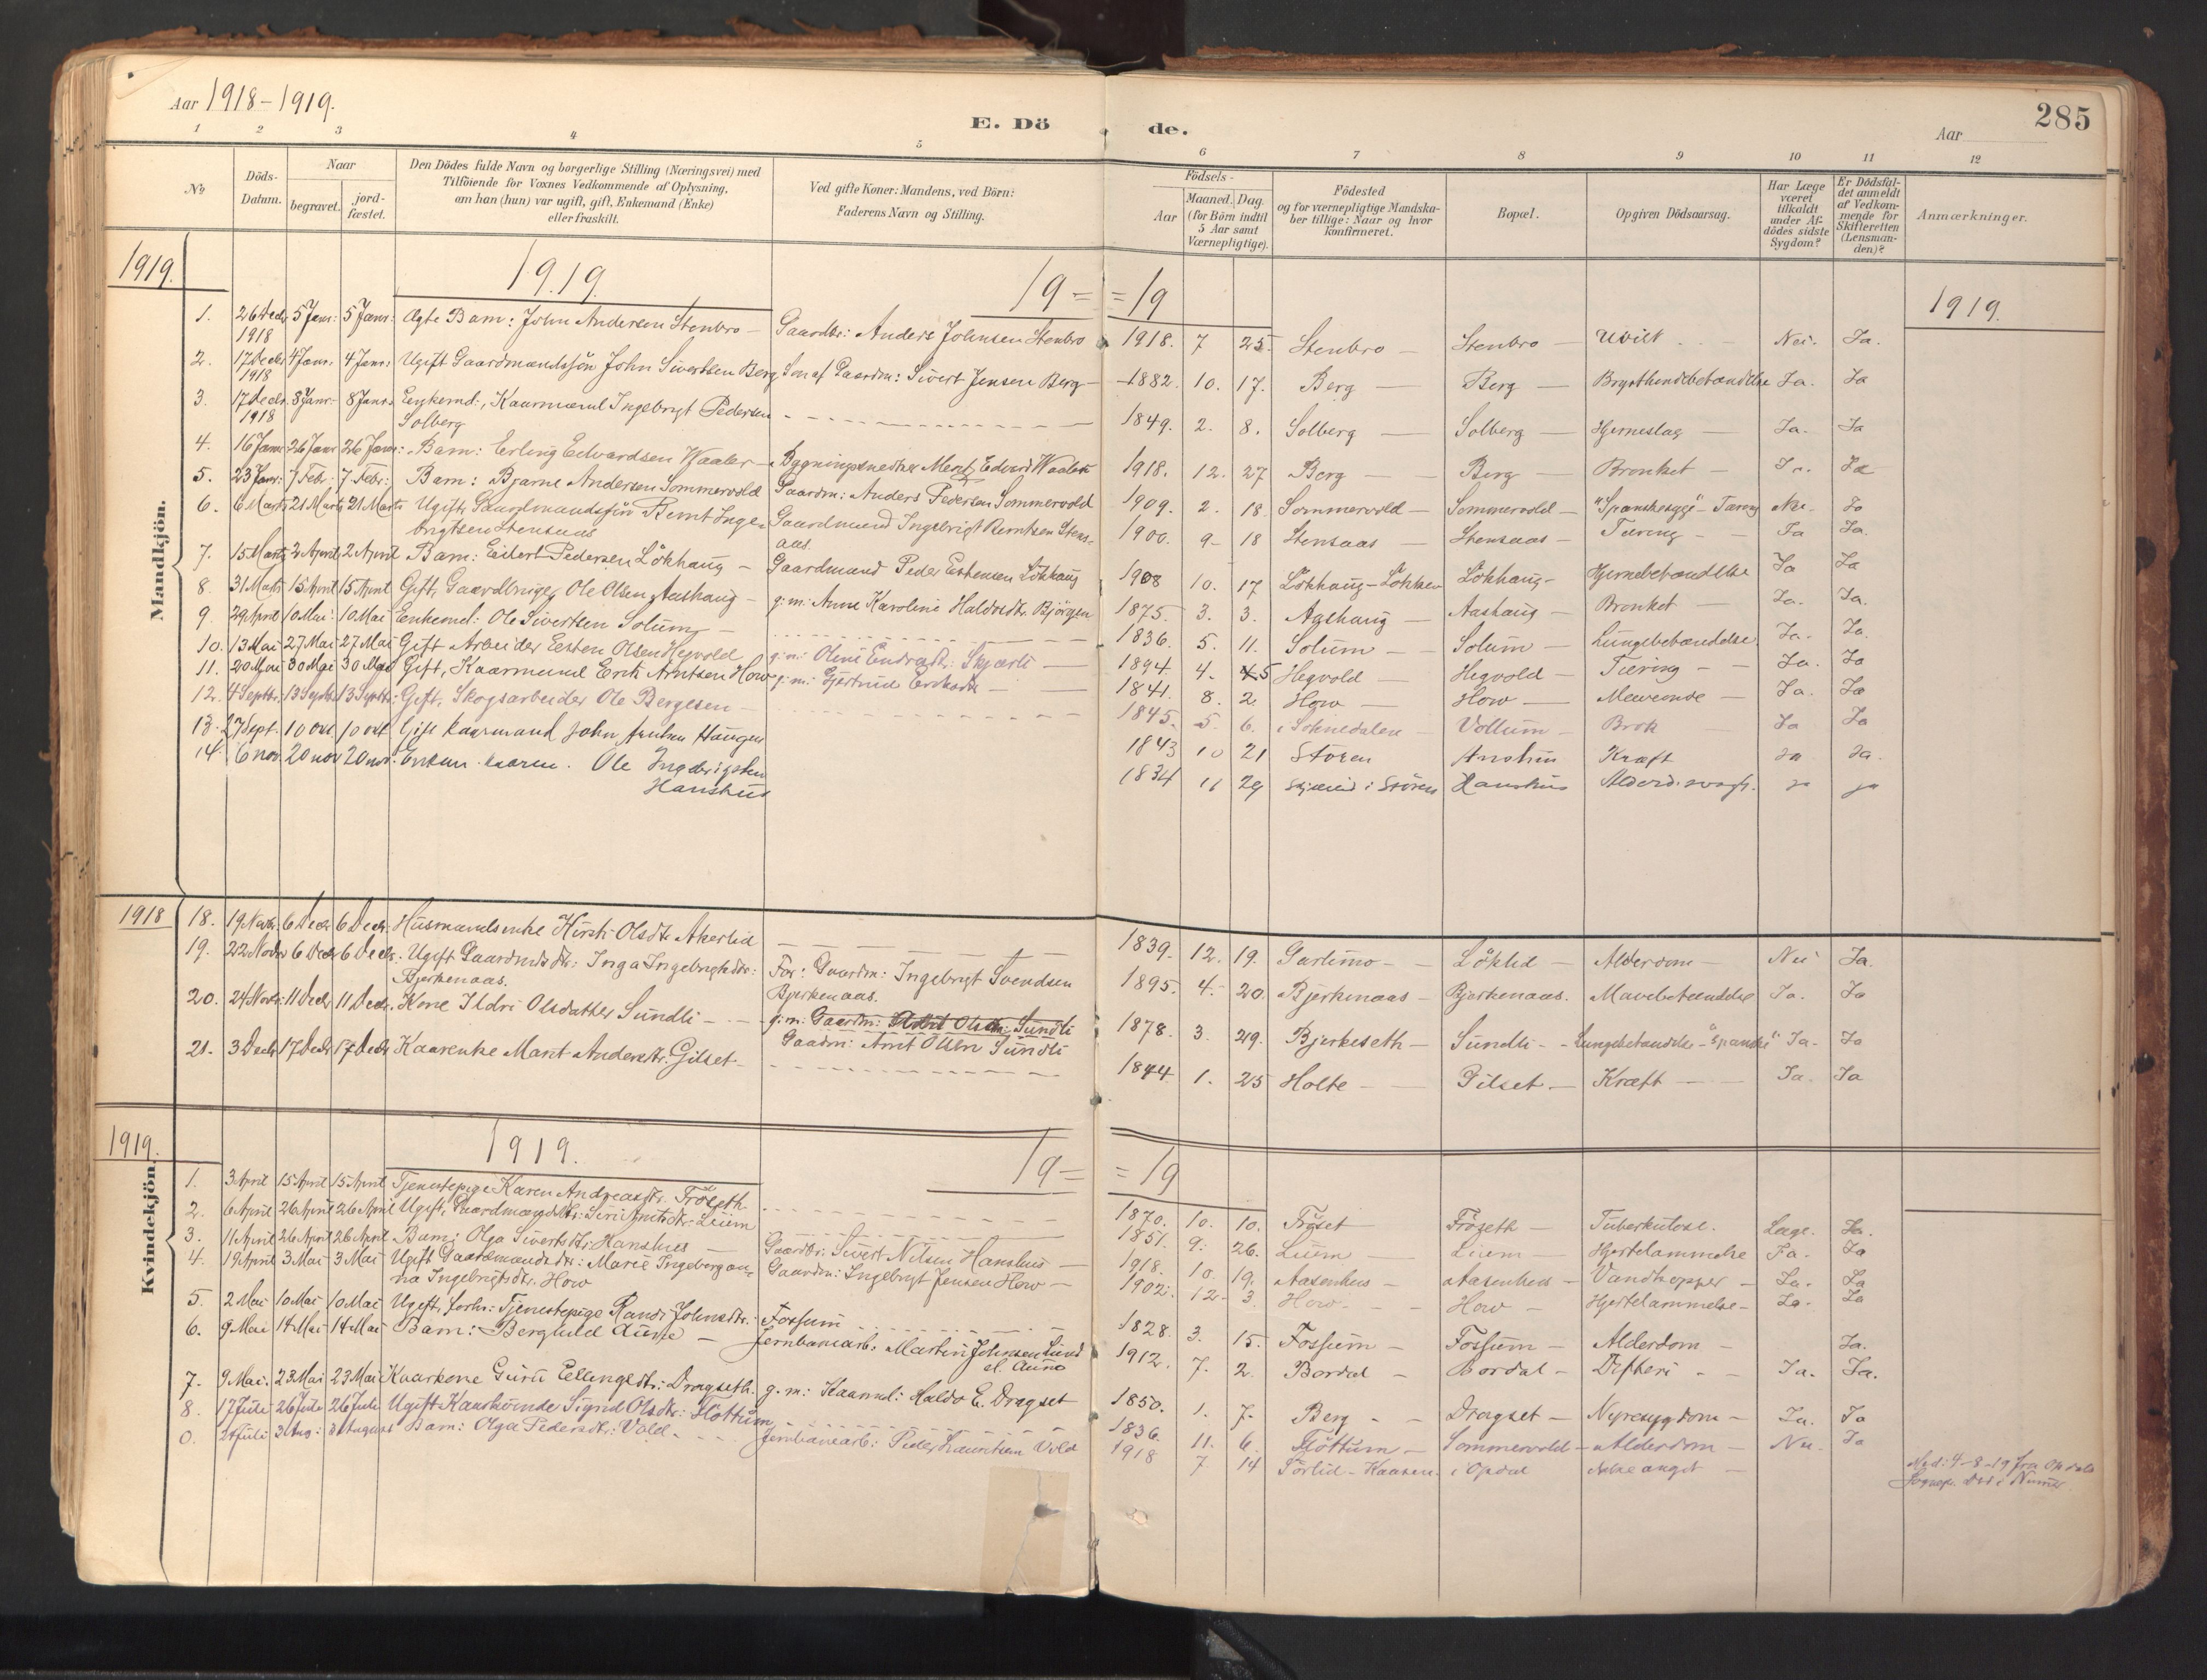 Aar 1918-1919.
E. Dö
de.
Aar
285
1 2 3 4 5 6 7 8 9 10 11 12
No
Döds-
Datum.
Naar
begravet.
jord-
fæstet.
Den Dödes fulde Navn og borgerlige Stilling (Næringsvei) med
Tilföiende for Voxnes Vedkommende af Oplysning,
om han (hun) var ugift, gift, Enkemand (Enke)
eller fraskilt.
Ved gifte Koner: Mandens, ved Börn:
Faderens Navn og Stilling.
Födsels-
Aar
Maaned. Dag.
(for Börn indtil
5 Aar samt
Værnepligtige).
Födested
og for værnepligtige Mandska-
ber tillige: Naar og hvor
konfirmeret.
Bopæl.
Opgiven Dödsaarsag.
Har Læge
været
tilkaldt
under Af-
dödes sidste
Sygdom?
Er Dödsfal-
det anmeldt
af Vedkom-
mende for
Skifteretten
(Lensman-
den)?
Anmærkninger.
Mandkjön.
1919.
1919.
19=
=19
1919.
1. 26 Decbr 1918 5 Janr: 5 Janr: Ægte Barn: John Andersen Stenbro - Gaardbr: Anders Johnsen Stenbro 1918. 7 25. Stenbro - Stenbro - Uvist - Nei. Ja.
2. 17 Decbr 1918 4 Janr. 4 Janr: Ugift Gaardmandssön John Sivertsen Berg Søn af Gaardm: Sivert Jensen Berg - 1882. 10. 17. Berg - Berg - Brysthindebetændelse Ja. Ja
3. 17 Decbr. 1918 8 Janr. 8 Janr. Enkemd., Kaarmand Ingebrigt Pedersen
Solberg 1849. 2. 8. Solberg - Solberg - Hjerneslag - Ja. Ja
4. 16 Janr 26 Janr 26 Janr: Barn: Erling Edvardsen Waaler - Bygningssnedker Edvard Waaler 1918. 12. 27 Berg - Berg - Bronket - Ja. Ja
5. 23 Janr: 7 Febr: 7. Febr: Barn: Bjarne Andersen Sommervold Gaardm: Anders Pedersen Sommervold 1909. 2. 18 Sommervold - Sommervold - "Spanskesyge" - Tæring Nei. Ja
6. 6 Marts 21 Marts 21 Marts Ugift, Gaardmandssön Bernt Inge-
brigtsen Stensaas Gaardmand Ingebrigt Berntsen Stens-
aas. 1900. 9 - 18 Stensaas - Stensaas - Tæring - Ja Ja.
7. 15 Marts 2 April 2 April Barn: Eilert Pedersen Lökhaug - Gaardmand Peder Estensen Lökhaug 1908 10. 17 Lökhaug - Lökken Lökhaug - Hjernebetændelse Ja Ja
8. 31 Marts 15 April 15 April Gift, Gaardbruger Ole Olsen Aashaug - g: m: Anne Karoline Haldosdtr. Björgen 1875. 3. 3. Aashaug - Aashaug - Bronket - Ja. Ja.
9. 29 April 10 Mai: 10 Mai Enkemd: Ole Sivertsen Solum - 1836. 5. 11. Solum - Solum - Lungebetændelse Ja. Ja.
10. 13 Mai 27 Mai 27 Mai Gift Arbeider Esten Olsen Hegvold g: m: Oline Endresdtr. Skjærli - 1894. 4. 5 Hegvold - Hegvold - Tæring - Ja. Ja
11. 20 Mai 30 Mai 30 Mai Gift, Kaarmand Erik Arntsen How g: m: Gjertrud 1841. 8. 2. How - How - Mavesonde - Ja. Ja
12. 4 Septbr. 13 Septbr 13 Septbr: Gift, Skogsarbeider Ole Bergesen - 1845. 5. 6. i Soknedalen - Vollum - Brok - Ja Ja
13. 27 Sept. 10 okt 10 okt Gift Kaarmand John Arntsen Haugen 1843 10 21 Stören Kræft Ja Ja.
14. 6 nov 20 nov 20 nov. Enkem. kaarm. Ole Ingebrigtsen
Hanshus 1834 11 29 i Stören Hanshus Alderd. svagh. ja ja
1918
18. 19 Novbr. 6 Decbr 6 Decbr. Husmandsenke Kirsti Olsdtr. Akerlid 1839. 12. 19. Garlimo - Löklid - Alderdom - Nei Ja.
19. 22 Novbr 6 Decbr 6 Decbr. Ugift Gaardmdsdtr: Inga Ingebrigtsdtr:
Bjerkenaas. Far: Gaardm: Ingebrigt Svendsen
Bjerkenaas. 1895. 4. 20. Bjerkenaas - Bjerkenaas. Mavebetændelse Ja. Ja
20. 24 Novbr: 11 Decbr 11 Decbr. Kone Ildri Olsdatter Sundli - g: m: Gaardm: Olsen Sundli
Gaardm: Arnt Olsen Sundli 1878. 3. 29. Bjerkeseth - Sundli - Lungebetændelse - "Spanske" Ja - Ja
21. 3 Decbr 17 Decbr 17 Decbr Kaarenke Marit Andersdtr. Gilset - 1844. 1. 25 Holte - Gilset - Kræft - Ja. Ja
Kvindekjön.
1919.
1919.
19=
=19
1. 3 April 15 April 15 April Tjenestepige Karen Andreasdtr. Fröseth 1870. 10. 10. Fröset Fröseth - Tuberkulose. Læge. Ja.
2. 6 April 26 April 26 April Ugift, Gaardmandsdtr: Siri Arntsdtr. Lium 1851. 9. 26. Lium - Lium - Hjertelammelse Ja. Ja
3. 11 April 26 April 26 April Barn: Olga Sivertsdtr. Hanshus - Gaardbr: Sivert Nilsen Hanshus - 1918. 10. 19. Aasenhus - Aasenhus - Vandkopper - Ja. Ja
4. 19 April 3 Mai 3 Mai Ugift Gaardmandsdtr: Marie Ingeborgan-
na Ingebrigtsdtr. How Gaardm: Ingebrigt Jensen How - 1902. 12 - 3. How - How - Hjertelammelse - Ja. Ja
5. 2 Mai 10 Mai 10 Mai Ugift, forhv: Tjenestepige Randi Johnsdtr: Fossum 1828. 3. 15. Fossum - Fossum - Alderdom - Ja.
6. 9 Mai 14 Mai 14 Mai Barn: Berghild Aune - Jernbanearb: Martin Johnsen Lund
el. Auno 1912. 7. 2. Bordal - Bordal - Difteri - Ja. Ja.
7. 9 Mai. 23 Mai 23 Mai Kaarkone Guru Ellingsdtr: Dragseth. g. m: Kaarmd: Haldo E. Dragset 1850. 1. 7. Berg - Dragset - Nyresygdom - Ja. Ja
8. 17 Juli 26 Juli 26 Juli Ugift Kaarkvinde Sigrid Olsdtr: Flöttum 1836. 11. 6. Flöttum - Sommervold - Alderdom - Nei. Ja
0. 24 Juli 3 Aug: 3 August Barn: Olga Pedersdtr: Vold - Jernbanearb: Peder Lauritsen Vold 1918 7. 14 Sörlid - Kaasen. i Opdal ikke angit - Med: 4-8-19 fra Opdals
Sognepr. Död i